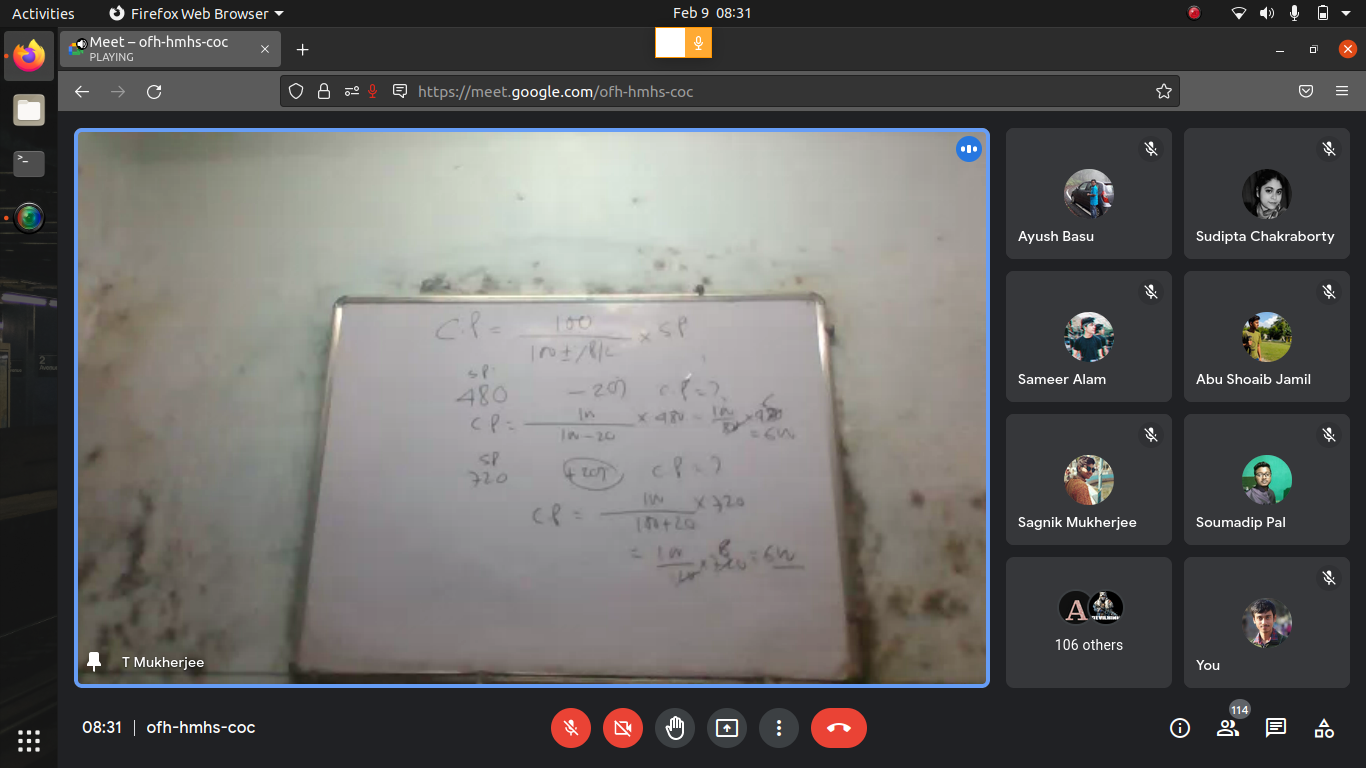 Activities
Firefox Web Browser
Feb 9 08:31
Meet – ofh-hmhs-coc
PLAYING
https://meet.google.com/ofh-hmhs-coc
C.P = 100 / 100 ± × SP
SP
480 - 20% C.P = ?
CP = 100 / 100-20 × 480 = 100 / 80 × 480
= 600
SP
720 +20% CP = ?
C.P = 100 / 100+20 × 720
= 100 / 120 × 720 = 600
T Mukherjee
Ayush Basu
Sudipta Chakraborty
Sameer Alam
Abu Shoaib Jamil
Sagnik Mukherjee
Soumadip Pal
A
106 others
You
08:31 ofh-hmhs-coc
114